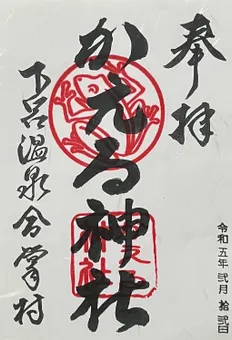 奉拝
かえる神社
下呂温泉合掌村
令和五年 弐月 拾弐日